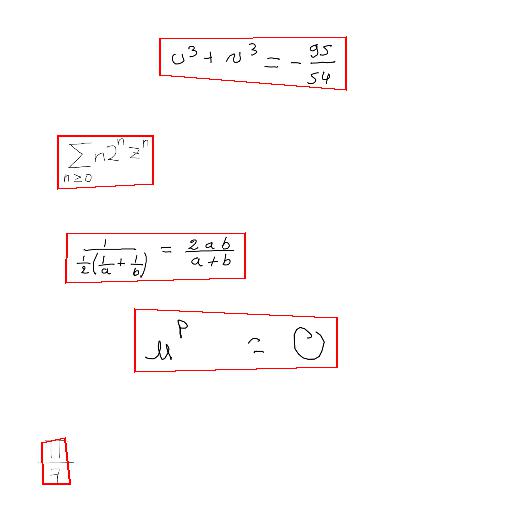 u³ + v³ = -95/54
∑_{n≥0} n2ⁿzⁿ
1/(½(1/a + 1/b)) = 2ab/(a+b)
𝓊^p = 0
11/7